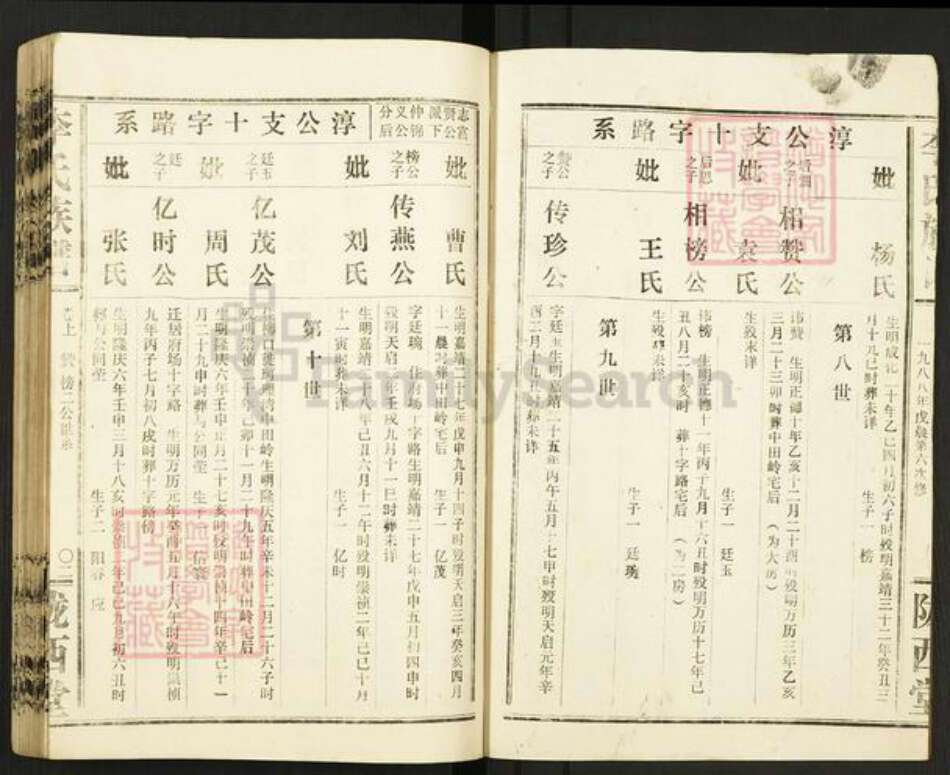 淳公支十字路系
妣 杨氏
月十九已时葬未详
生子一 榜
第八世
之子
相赞公
讳赞 生明正德十年乙亥十二月二十酉时殁明万历三年乙亥
三月二十三卯时葬中田岭宅后 (为大房)
妣 袁氏
生殁未详
生子一 廷玉
后思之子
相榜公
讳榜 生明正德十一年丙子九月十六丑时殁明万历十七年已
丑八月二十亥时 葬十字路宅后 (为二房)
妣 王氏
生殁葬未详
生子一 廷璃
第九世
赞公之子
传珍公
字廷玉生明嘉靖二十五年丙午五月十七申时殁明天启元年辛
酉二月十九
葬未详
志富贤公派下仲锦义公分后
淳公支十字路系
妣 曹氏
生明嘉靖二十七年戊申九月十四子时殁明天启三年癸亥四月
十一晨时葬中田岭宅后 生子一 亿茂
榜公之子
传燕公
字廷璃 住府场十字路生明嘉靖二十七年戊申五月初四申时
殁明天启二年壬戌九月十一巳时葬未详
妣 刘氏
生明嘉靖二十八年己丑六月十二午时殁明崇祯二年已巳十月
十一寅时葬未详 生子一 亿时
第十世
廷玉之子
亿茂公
中田岭生明隆庆五年辛未十二月二十六子时
殁明崇祯十二年己卯十一月二十九午时葬中田岭宅后
妣 周氏
生明隆庆六年壬申正月二十七亥时殁明崇祯十四年辛已十一
月二十九申时葬与公同茔 生子
廷之子
亿时公
迁居府场十字路 生明万历元年癸酉五月十六午时殁明崇祯
九年丙子七月初八戌时葬十字路傍
妣 张氏
生明隆庆六年壬申三月十八亥时殁明崇祯二年已巳九月初六丑时
葬与公同茔 生子二 阳春
李氏族谱
卷上
赞榜二公世系
陇西堂
李氏族谱
一九八八年戊晨第六次修
陇西堂
FamilySearch